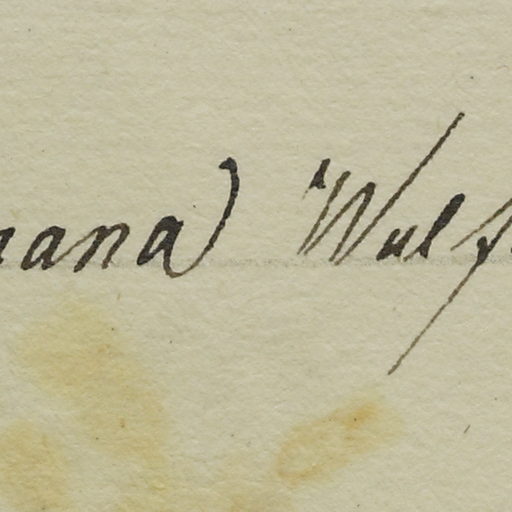 nana) Wulf